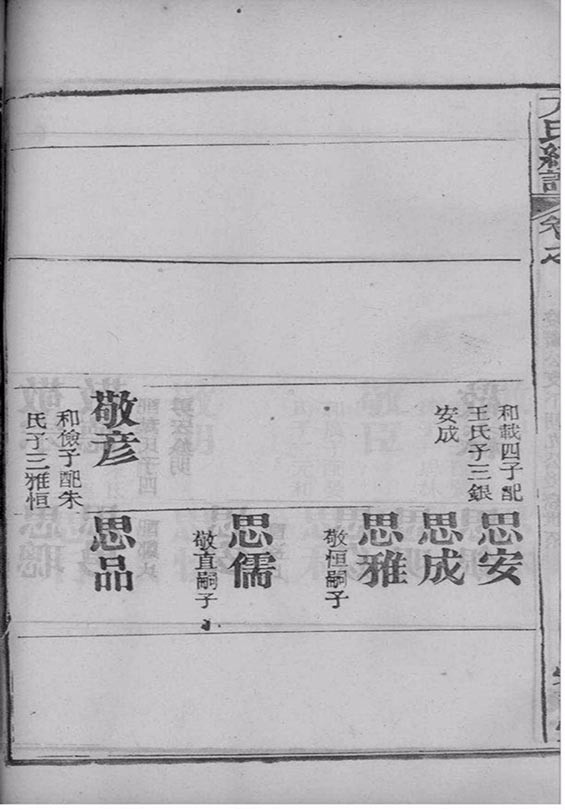 氏統譜
卷之
和載四子配
王氏子三銀
安成
思安
思成
思雅
敬恒嗣子
思儒
敬直嗣子
敬彦
和儉子配朱
氏子三雅恒
思品